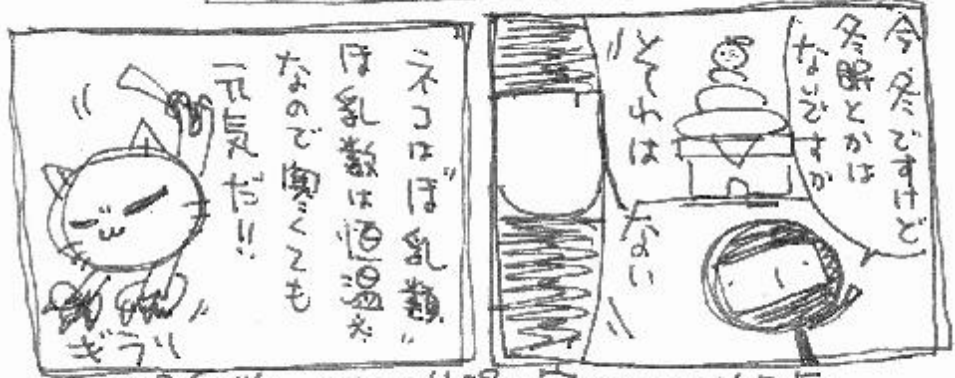 今 冬ですけど
冬眠とかは
ないですか
それは
ない
ネコはほ乳類"
ほ乳数は恒温
なので寒くても
元気だ!!